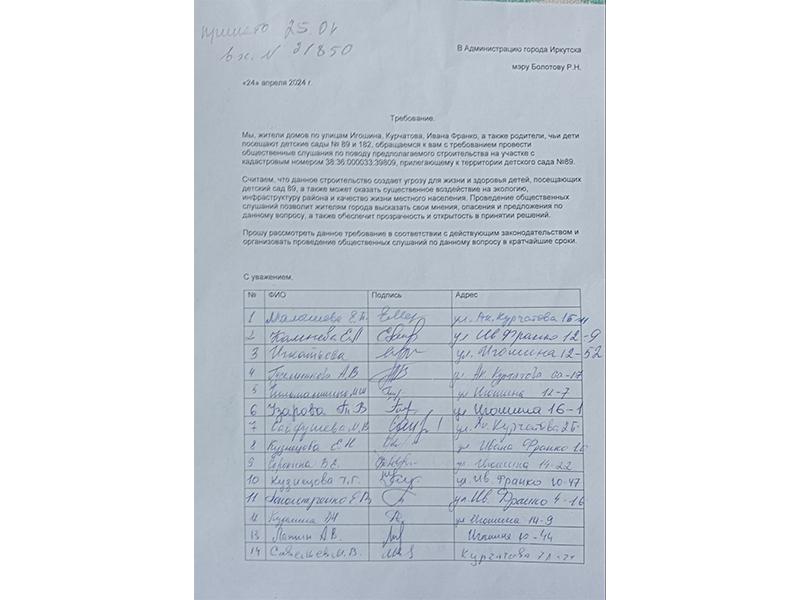 25.04
вх. N 21850
В Администрацию города Иркутска
мэру Болотову Р.Н.
«24» апреля 2024 г.
Требование.
Мы, жители домов по улицам Игошина, Курчатова, Ивана Франко, а также родители, чьи дети
посещают детские сады № 89 и 182, обращаемся к вам с требованием провести
общественные слушания по поводу предполагаемого строительства на участке с
кадастровым номером 38:36:000033:39809, прилегающему к территории детского сада №89.
Считаем, что данное строительство создает угрозу для жизни и здоровья детей, посещающих
детский сад 89, а также может оказать существенное воздействие на экологию,
инфраструктуру района и качество жизни местного населения. Проведение общественных
слушаний позволит жителям города высказать свои мнения, опасения и предложения по
данному вопросу, а также обеспечит прозрачность и открытость в принятии решений.
Прошу рассмотреть данное требование в соответствии с действующим законодательством и
организовать проведение общественных слушаний по данному вопросу в кратчайшие сроки.
С уважением,
№ ФИО Подпись Адрес
1 ул. Ак. Курчатова
2 ул Ив Франко 12-9
3 Игнатьева ул. Игошина 12-52
4 А.В ул. Ак Курчатова
5 ул Игошина 12-7
6 Узарова ул Игошина 16-1
7 ул. Курчатова 2б
8 Кузнецова Е.Н ул Ивана Франко
9 Сорокина В.Е. ул. Игошина 14-22
10 Кузнецова Т.Г. ул. Ив. Франко
11 ул. Ив. Франко 4-16
12 ул Игошина 14-9
13 Лапин А.В. Игошина
14 Савельев М.В. Курчатова